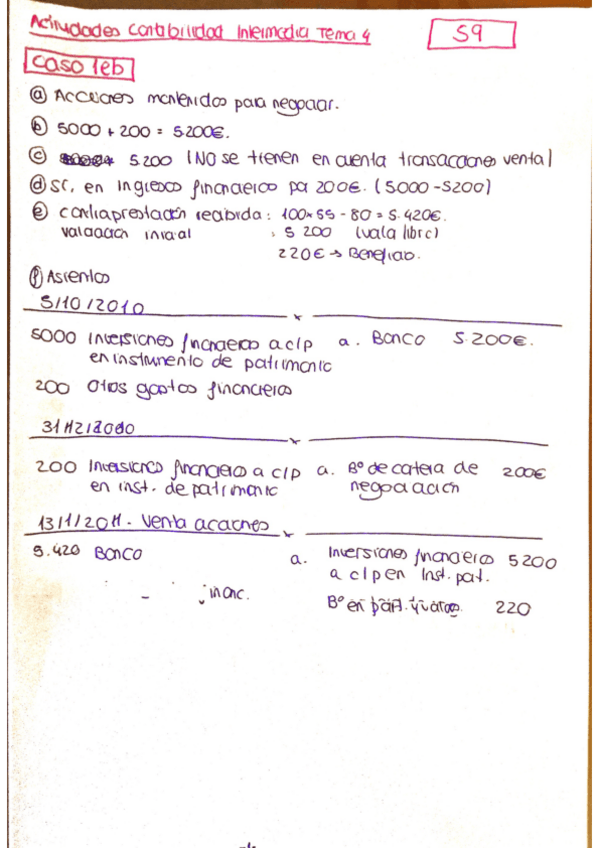 Actividades Contabilidad Intermedia Tema 4
S9
Caso Teb
ⓐ Acciones mantenidos para negociar.
ⓑ 5000 + 200 = 5200€.
ⓒ 5.200 (NO se tienen en cuenta transacciones venta)
ⓓ Sí, en Ingresos financieros por 200€. (5000-5200)
ⓔ contraprestación recibida: 100x55 - 80 = 5.420€.
valoración inicial : 5 200 (vala libro)
220€ → Beneficio.
ⓕ Asientos
5/10/2010
5000 Inversiones financieras a c/p a. Banco 5.200€.
en instrumento de patrimonio
200 Otros gastos financieros
200 Inversiones financieras a c/p a. Bº de cartera de 200€
en inst. de patrimonio negociación
13/1/2011. Venta acciones
5.420 Banco a. Inversiones financieras 5200
a c/p en Inst. pat.
inanc.
Bº en part. y valores 220